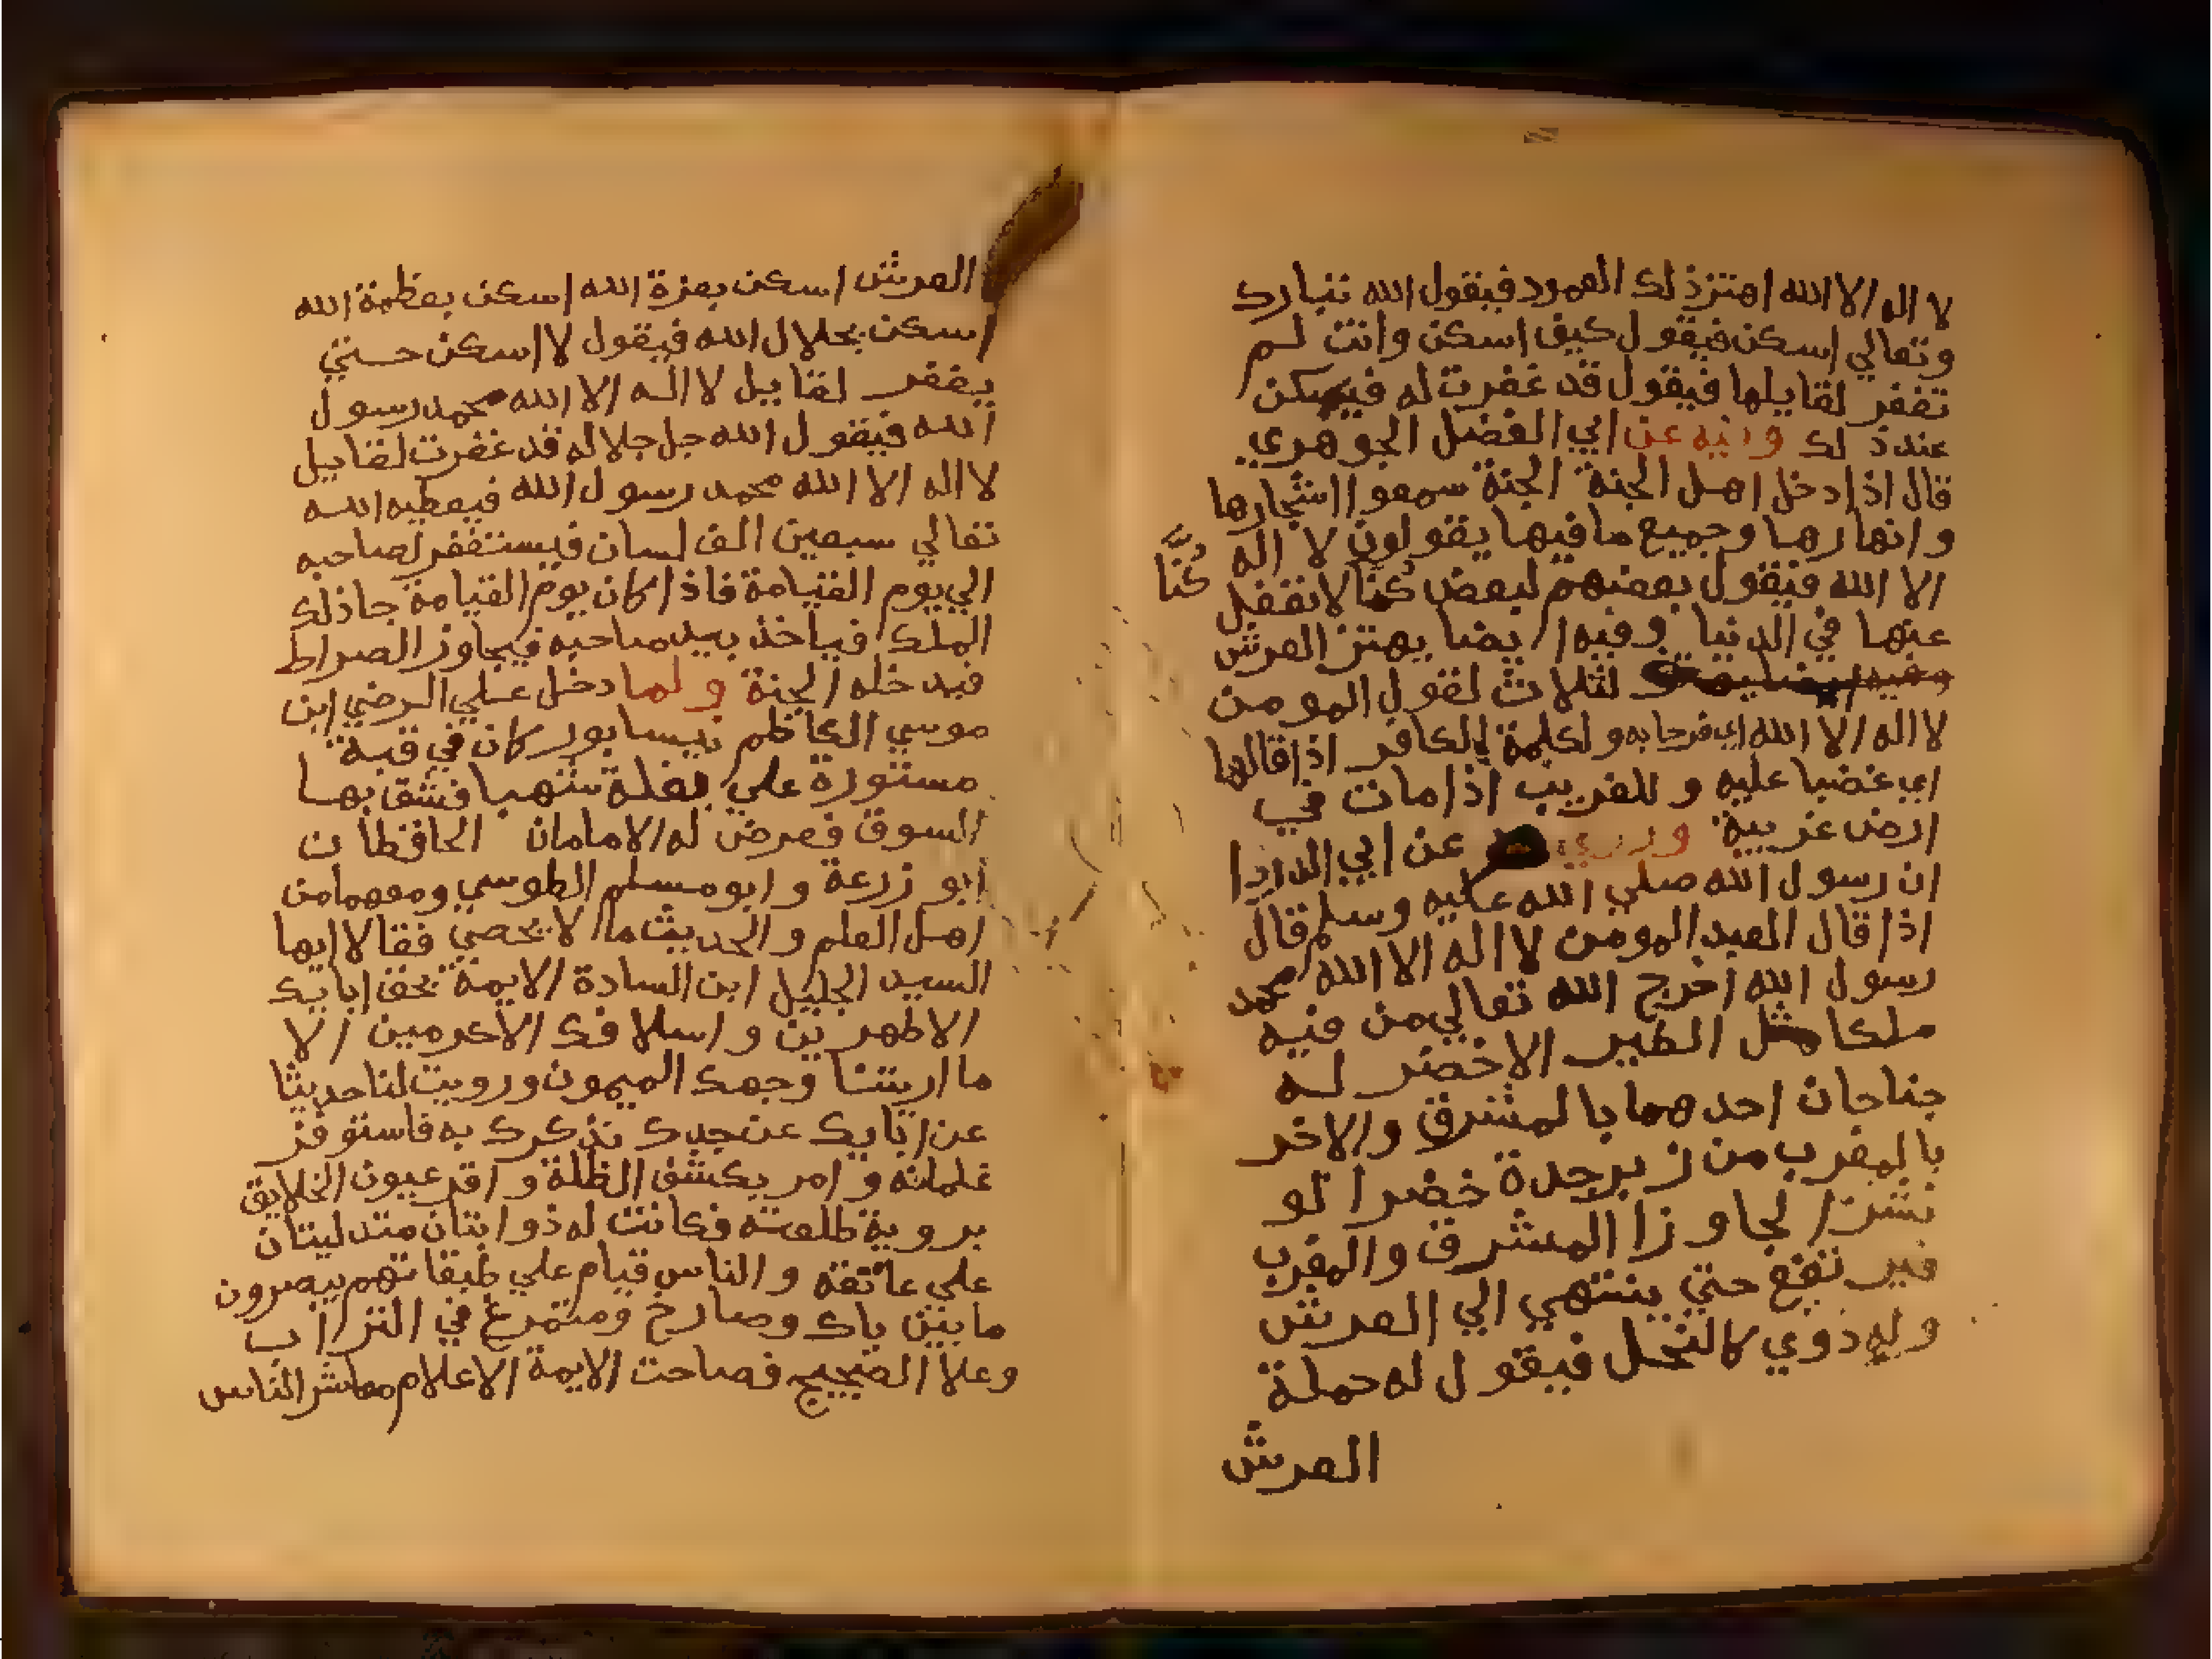 لا اله الا الله اهتز ذلك العمود فيقول الله تبارك
وتعالي اسكن فيقول كيف اسكن وانت لم
تغفر لقايلها فيقول قد غفرت له فيسكن
عند ذلك وفيه عن ابي الفضل الجوهري
قال اذا دخل اهل الجنة الجنة سمعوا اشجارها
وانهارها وجميع ما فيها يقولون لا اله
الا الله فيقول بعضهم لبعض كنا لا نغفل
كُنَّا
عنها في الدنيا وفيه ايضا يهتز العرش
لثلاث لقول المومن
لا اله الا الله اي فرحا به ولكلمة الكافر اذا قالها
اي غضبا عليه وللغريب اذا مات في
ارض غريبة وروي عن ابي الدردا
ان رسول الله صلي الله عليه وسلم قال
اذا قال العبد المومن لا اله الا الله محمد
رسول الله اخرج الله تعالي من فيه
ملكا مثل الطير الاخضر له
جناحان احدهما بالمشرق والاخر
بالمغرب من زبرجدة خضرا لو
نشرا لجاوزا المشرق والمغرب
فيرتفع حتي ينتهي الي العرش
وله دوي كالنحل فيقول له حملة
العرش
العرش اسكن بعزة الله اسكن بعظمة الله
اسكن بجلال الله فيقول لا اسكن حتي
يغفر لقايل لا اله الا الله محمد رسول
الله فيقول الله جل جلاله قد غفرت لقايل
لا اله الا الله محمد رسول الله فيعطيه الله
تعالي سبعين الف لسان فيستغفر لصاحبه
الي يوم القيامة فاذا كان يوم القيامة جا ذلك
الملك فياخذ بيد صاحبه فيجاوز الصراط
فيدخله الجنة ولما دخل علي الرضي ابن
موسي الكاظم نيسابور كان في قبة
مستورة علي بغلة شهبا فشق بها
السوق فعرض له الامامان الحافظان
ابو زرعة وابو مسلم الطوسي ومعهما من
اهل العلم والحديث ما لا يحصي فقالا ايها
السيد الجليل ابن السادة الايمة بحق ابايك
الاطهرين واسلافك الاكرمين الا
ما اريتنا وجهك الميمون ورويت لنا حديثا
عن ابايك عن جدك نذكرك به فاستوقف
غلمانه وامر بكشف الظلة واقر عيون الخلايق
بروية طلعته فكانت له ذوابتان متدليتان
علي عاتقه والناس قيام علي طبقاتهم يبصرون
ما بين باك وصارخ ومتمرغ في التراب
وعلا الضجيج فصاحت الايمة الاعلام معاشر الناس